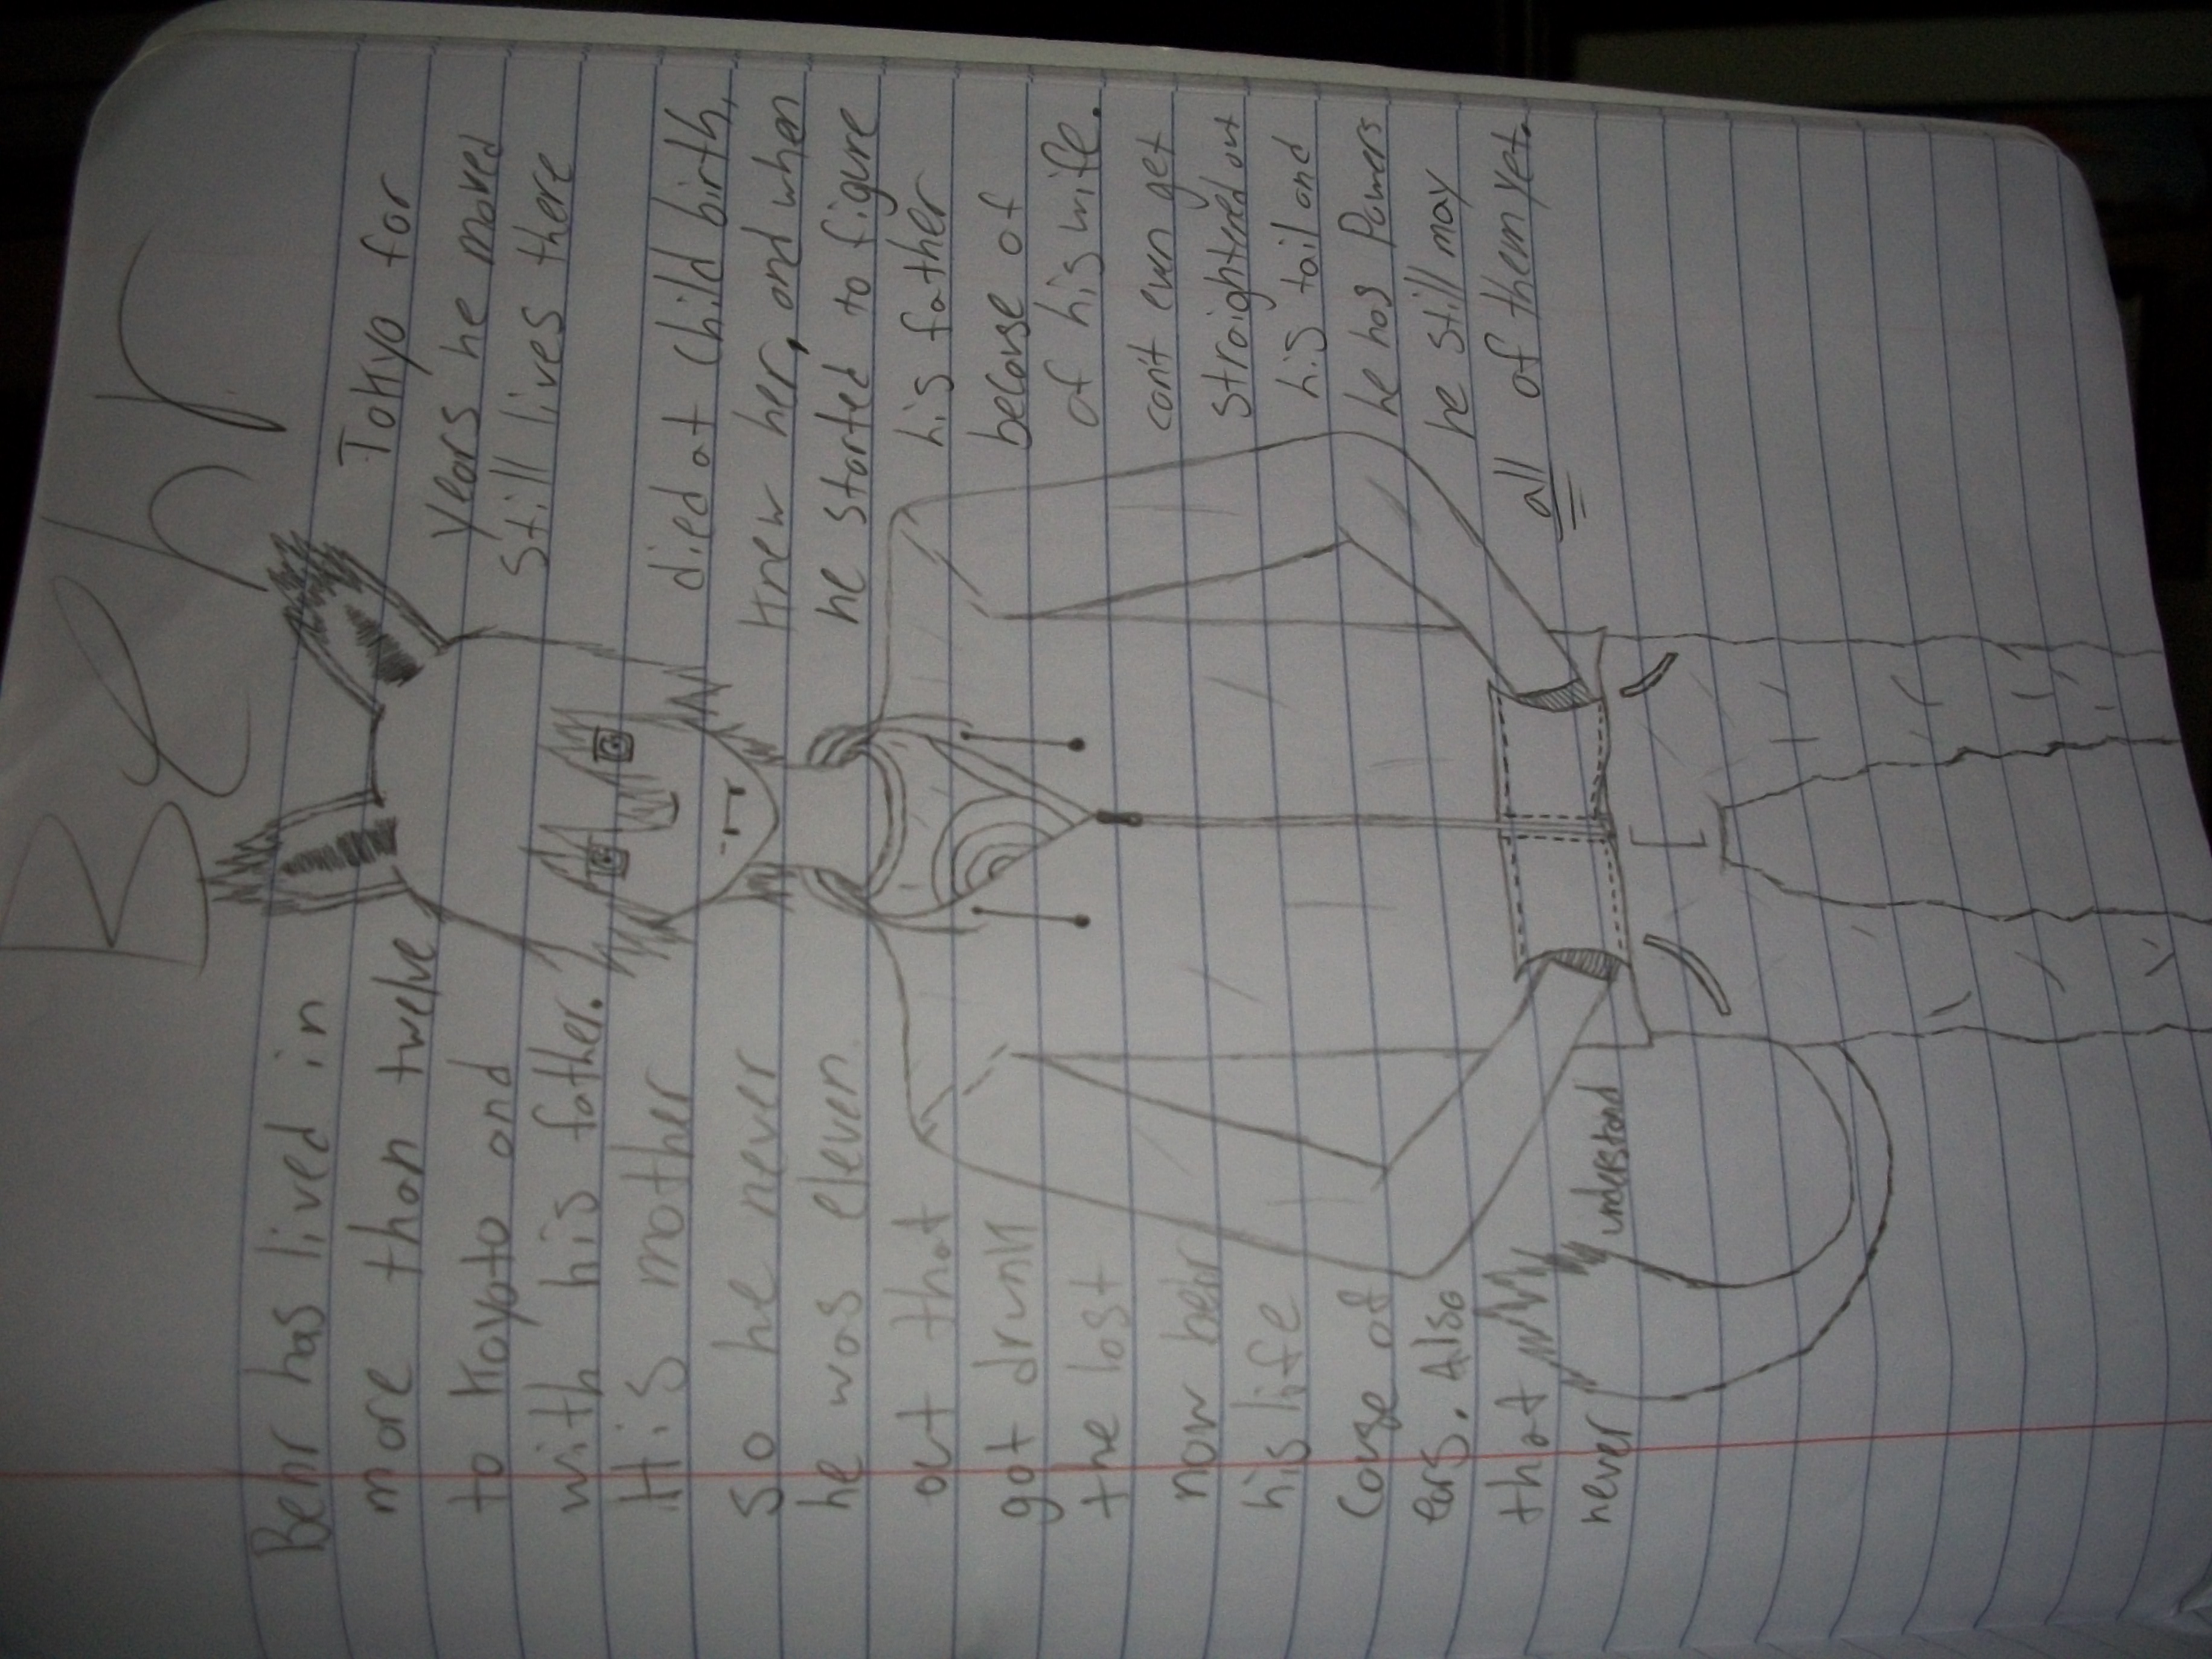 Behr
Behr has lived in Tokyo for
more than twelve years he moved
to Koyoto and still lives there
with his father.
His mother died at child birth,
So he never knew her, and when
he was eleven he started to figure
out that his father
got drunk becase of
the lost of his wife.
now behr can't even get
his life straightened out
Cause of his tail and
ears. Also he has Powers
that he still may
never understand all of them yet.